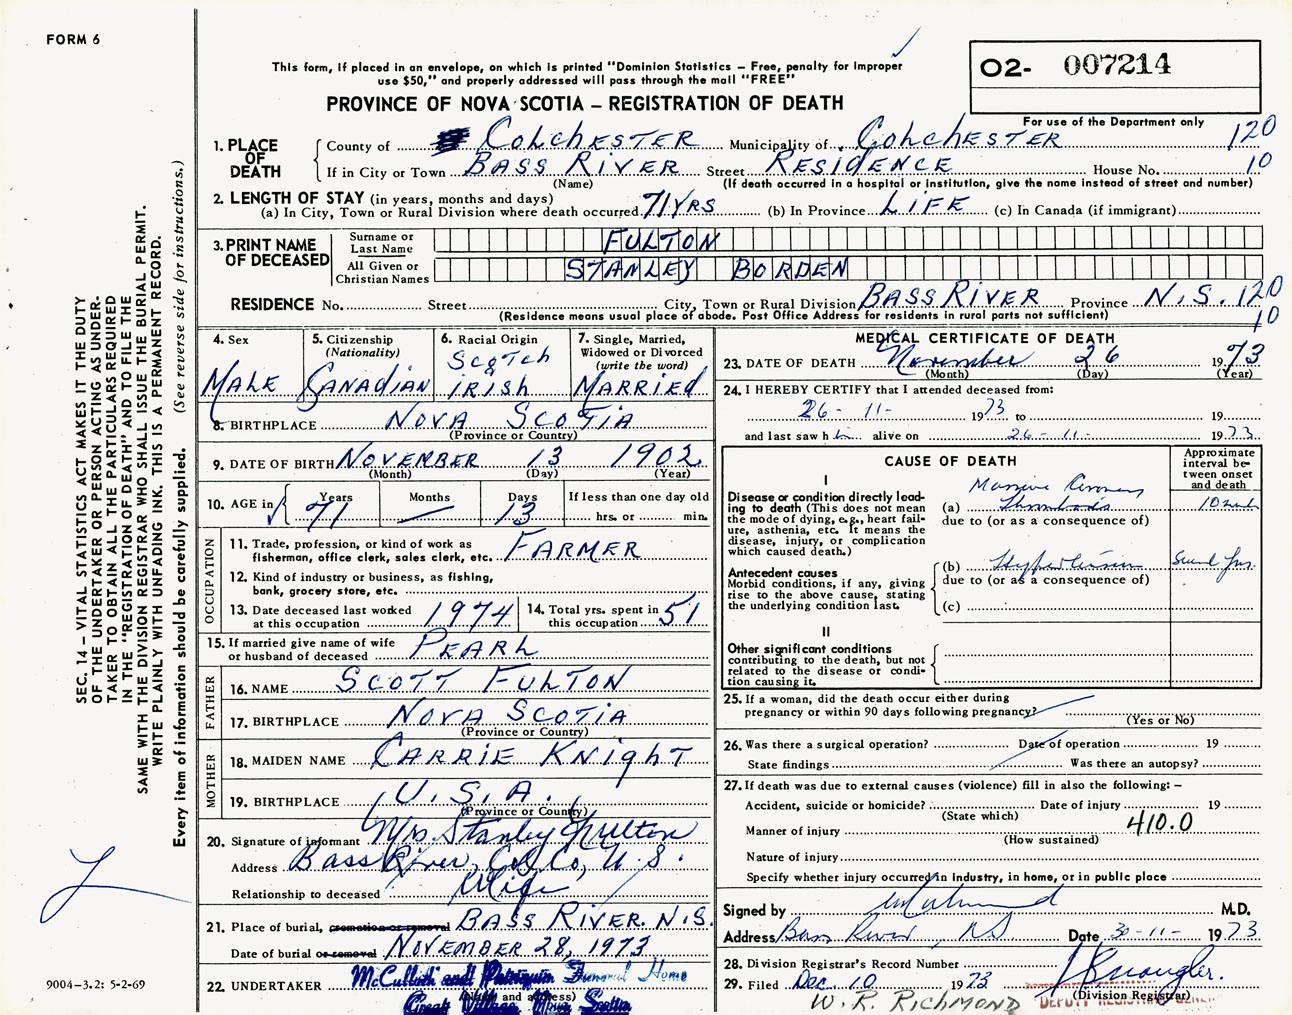 FORM 6
This form, if placed in an envelope, on which is printed "Dominion Statistics – Free, penalty for improper
use $50," and properly addressed will pass through the mail "FREE"
O2- 007214
PROVINCE OF NOVA SCOTIA – REGISTRATION OF DEATH
For use of the Department only
1. PLACE OF DEATH
County of COLCHESTER Municipality of COLCHESTER 120
If in City or Town BASS RIVER Street RESIDENCE House No. 10
(Name) (If death occurred in a hospital or institution, give the name instead of street and number)
2. LENGTH OF STAY (in years, months and days)
(a) In City, Town or Rural Division where death occurred 71 YRS (b) In Province LIFE (c) In Canada (if immigrant)
3. PRINT NAME OF DECEASED
Surname or Last Name FULTON
All Given or Christian Names STANLEY BORDEN
RESIDENCE No. Street City, Town or Rural Division BASS RIVER Province N.S. 120
(Residence means usual place of abode. Post Office Address for residents in rural parts not sufficient) 10
4. Sex MALE
5. Citizenship (Nationality) CANADIAN
6. Racial Origin Scotch & IRISH
7. Single, Married, Widowed or Divorced (write the word) MARRIED
8. BIRTHPLACE NOVA SCOTIA
(Province or Country)
9. DATE OF BIRTH NOVEMBER 13 1902
(Month) (Day) (Year)
10. AGE in Years 71 Months — Days 13 If less than one day old
hrs. or min.
OCCUPATION
11. Trade, profession, or kind of work as
fisherman, office clerk, sales clerk, etc. FARMER
12. Kind of industry or business, as fishing,
bank, grocery store, etc.
13. Date deceased last worked at this occupation 1974
14. Total yrs. spent in this occupation 51
15. If married give name of wife
or husband of deceased PEARL
FATHER
16. NAME SCOTT FULTON
17. BIRTHPLACE NOVA SCOTIA
(Province or Country)
MOTHER
18. MAIDEN NAME CARRIE KNIGHT
19. BIRTHPLACE U.S.A.
(Province or Country)
20. Signature of informant Mrs. Stanley Fulton
Address Bass River, Col Co, N.S.
Relationship to deceased Wife
21. Place of burial, cremation or removal BASS RIVER. N.S.
Date of burial or removal NOVEMBER 28, 1973
22. UNDERTAKER McCulloch and Patriquin Funeral Home
(Name and address)
Great Village Nova Scotia
MEDICAL CERTIFICATE OF DEATH
23. DATE OF DEATH November 26 1973
(Month) (Day) (Year)
24. I HEREBY CERTIFY that I attended deceased from:
26-11- 1973 to 19
and last saw him alive on 26-11- 1973
CAUSE OF DEATH
Approximate interval between onset and death
I
Disease or condition directly leading to death (This does not
mean the mode of dying, e.g., heart failure, asthenia, etc. It means the
disease, injury, or complication
which caused death.)
(a) Massive Coronary Thrombosis
due to (or as a consequence of)
Antecedent causes
Morbid conditions, if any, giving
rise to the above cause, stating
the underlying condition last.
(b) Hypertension
due to (or as a consequence of)
(c)
II
Other significant conditions
contributing to the death, but not
related to the disease or condition causing it.
25. If a woman, did the death occur either during
pregnancy or within 90 days following pregnancy?
(Yes or No)
26. Was there a surgical operation? Date of operation 19
State findings Was there an autopsy?
27. If death was due to external causes (violence) fill in also the following: –
Accident, suicide or homicide? Date of injury 19
(State which)
Manner of injury 410.0
(How sustained)
Nature of injury
Specify whether injury occurred in industry, in home, or in public place
Signed by M.D.
Address Bass River, NS Date 30-11- 1973
28. Division Registrar's Record Number
29. Filed Dec. 10 1973
(Division Registrar)
W. R. RICHMOND DEPUTY REGISTRAR GENERAL
SEC. 14 – VITAL STATISTICS ACT MAKES IT THE DUTY
OF THE UNDERTAKER OR PERSON ACTING AS UNDER-
TAKER TO OBTAIN ALL THE PARTICULARS REQUIRED
IN THE "REGISTRATION OF DEATH" AND TO FILE THE
SAME WITH THE DIVISION REGISTRAR WHO SHALL ISSUE THE BURIAL PERMIT.
WRITE PLAINLY WITH UNFADING INK. THIS IS A PERMANENT RECORD.
Every item of information should be carefully supplied. (See reverse side for instructions.)
9004-3.2: 5-2-69